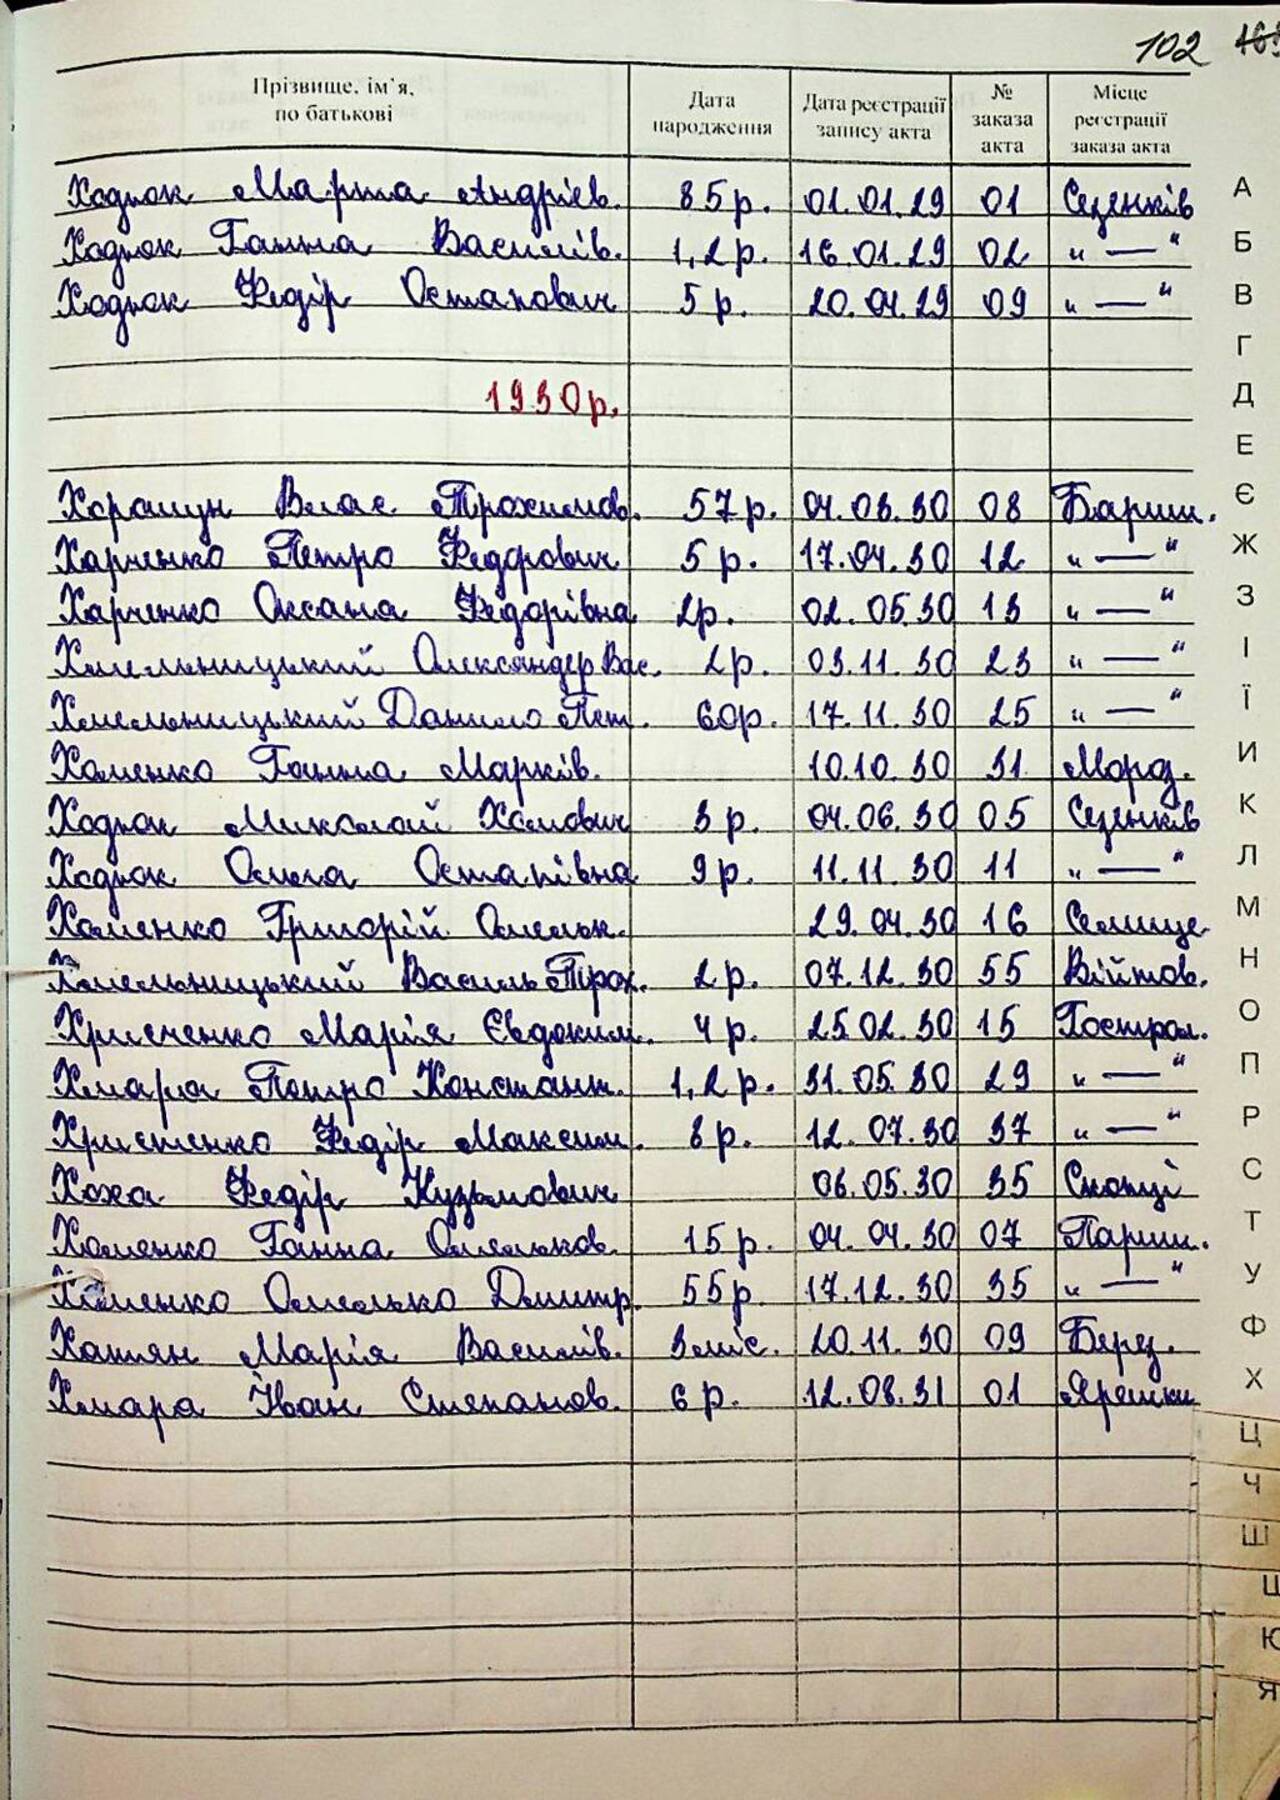 102 163
Прізвище, ім'я, по батькові | Дата народження | Дата реєстрації запису акта | № заказа акта | Місце реєстрації заказа акта
Ходнок Марта Андріїв. 85р. 01.01.29 01 Сезенків
Ходнок Ганна Василів. 1,2р. 16.01.29 02 " — "
Ходнок Федір Остапович 5р. 20.04.29 09 " — "
1930р.
Харашун Влас Трохимов. 57р. 04.03.30 08 Бариш.
Харченко Петро Федорович 5р. 17.04.30 12 " — "
Харченко Оксана Федорівна 2р. 02.05.30 13 " — "
Хмельницький Олександер Вас. 2р. 03.11.30 23 " — "
Хмельницький Данило Пет. 60р. 17.11.30 25 " — "
Хоменко Ганна Марків. 10.10.30 31 Мороз.
Ходнок Миколай Хомович 3р. 04.06.30 05 Сезенків
Ходнок Ольга Остапівна 9р. 11.11.30 11 " — "
Хоменко Григорій Омельк. 29.04.30 16 Селище
Хмельницький Василь Трох. 2р. 07.12.30 55 Війтов.
Христенко Марія Євдоким. 4р. 25.02.30 15 Гострол.
Хмара Петро Констант. 1,2р. 31.05.30 29 " — "
Христенко Федір Максим. 8р. 12.07.30 37 " — "
Хоха Федір Кузьмович 06.05.30 35 Скопці
Хоменко Ганна Омельков. 15р. 04.04.30 07 Париш.
Хоменко Омелько Дмитр. 55р. 17.12.30 35 " — "
Хатян Марія Василів. 3міс. 20.11.30 09 Берез.
Хмара Іван Степанов. 6р. 12.08.31 01 Ярешки
А
Б
В
Г
Д
Е
Є
Ж
З
І
Ї
И
К
Л
М
Н
О
П
Р
С
Т
У
Ф
Х
Ц
Ч
Ш
Щ
Ю
Я